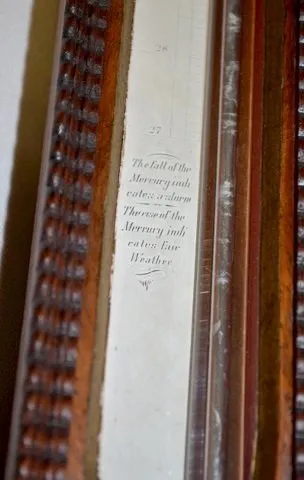 28
27
The fall of the
Mercury indi
cates a storm
The rise of the
Mercury indi
cates fair
Weather